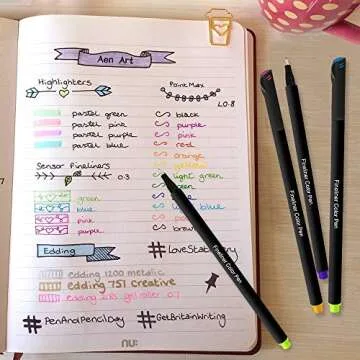 Aen Art
Highlighters
pastel green
pastel pink
pastel purple
pastel blue
Sensor Fineliners
0.3
green
blue
pink
purple
Edding
edding 1200 metalic
edding 751 creative
edding inks gel roller 0.7
#PenAndPencilDay
Point Max
L0.8
black
purple
pink
red
orange
yellow
light green
green
blue
blue
pink
brown
#LoveStationery
#GetBritainWriting
nu:
Fineliner Color Pen
Fineliner Color Pen
Fineliner Color Pen
Fineliner Color Pen